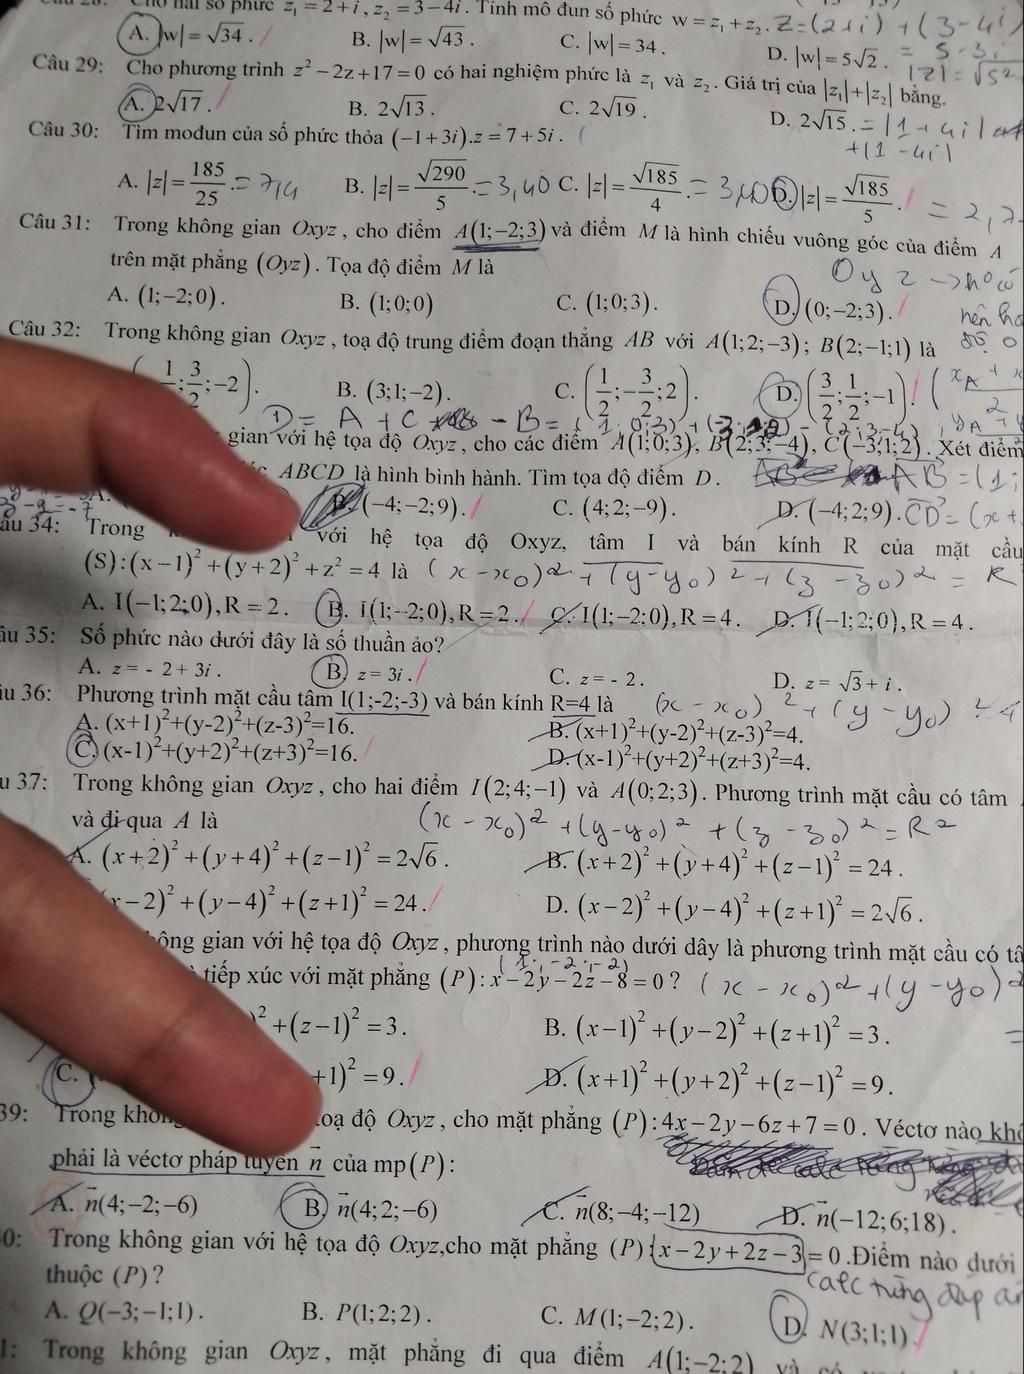 Cho hai số phức z₁ = 2 + i, z₂ = 3 − 4i. Tính mô đun số phức w = z₁ + z₂. Z = (2+i) + (3−4i)
A. |w| = √34. B. |w| = √43. C. |w| = 34. D. |w| = 5√2. = 5 − 3i
Câu 29: Cho phương trình z² − 2z + 17 = 0 có hai nghiệm phức là z₁ và z₂. Giá trị của |z₁| + |z₂| bằng.
A. 2√17. B. 2√13. C. 2√19. D. 2√15. = |1 + 4i|
+ |1 − 4i|
Câu 30: Tìm mođun của số phức thỏa (−1 + 3i).z = 7 + 5i.
A. |z| = 185/25. = 7,4 B. |z| = √290/5. = 3,40 C. |z| = √185/4. = 3,40 D. |z| = √185/5. = 2,7
Câu 31: Trong không gian Oxyz, cho điểm A(1;−2;3) và điểm M là hình chiếu vuông góc của điểm A
trên mặt phẳng (Oyz). Tọa độ điểm M là
Oyz → k° có
A. (1;−2;0). B. (1;0;0) C. (1;0;3). D. (0;−2;3).
nên
Câu 32: Trong không gian Oxyz, toạ độ trung điểm đoạn thẳng AB với A(1;2;−3); B(2;−1;1) là
1/2; 3/2; −2). B. (3;1;−2). C. (1/2; −3/2; 2). D. (3/2; 1/2; −1).
D = A + C − B =
gian với hệ tọa độ Oxyz, cho các điểm A(1;0;3), B(2;3;−4), C(−3;1;2). Xét điểm
ABCD là hình bình hành. Tìm tọa độ điểm D. AB = (1;
B. (−4;−2;9). C. (4;2;−9). D. (−4;2;9). CD = (x +
34: Trong với hệ tọa độ Oxyz, tâm I và bán kính R của mặt cầu
(S): (x−1)² + (y+2)² + z² = 4 là (x − x₀)² + (y − y₀)² + (z − z₀)² = R
A. I(−1;2;0), R = 2. B. I(1;−2;0), R = 2. C. I(1;−2;0), R = 4. D. I(−1;2;0), R = 4.
35: Số phức nào dưới đây là số thuần ảo?
A. z = - 2 + 3i. B. z = 3i. C. z = - 2. D. z = √3 + i.
36: Phương trình mặt cầu tâm I(1;-2;-3) và bán kính R=4 là (x − x₀)² + (y − y₀)
A. (x+1)²+(y-2)²+(z-3)²=16. B. (x+1)²+(y-2)²+(z-3)²=4.
C. (x-1)²+(y+2)²+(z+3)²=16. D. (x-1)²+(y+2)²+(z+3)²=4.
37: Trong không gian Oxyz, cho hai điểm I(2;4;−1) và A(0;2;3). Phương trình mặt cầu có tâm
và đi qua A là (x − x₀)² + (y − y₀)² + (z − z₀)² = R²
A. (x+2)² + (y+4)² + (z−1)² = 2√6. B. (x+2)² + (y+4)² + (z−1)² = 24.
x−2)² + (y−4)² + (z+1)² = 24. D. (x−2)² + (y−4)² + (z+1)² = 2√6.
gian với hệ tọa độ Oxyz, phương trình nào dưới đây là phương trình mặt cầu có
(1; −2; −2)
tiếp xúc với mặt phẳng (P): x − 2y − 2z − 8 = 0? (x − x₀)² + (y − y₀)²
)² + (z−1)² = 3. B. (x−1)² + (y−2)² + (z+1)² = 3.
C. +1)² = 9. D. (x+1)² + (y+2)² + (z−1)² = 9.
39: Trong toạ độ Oxyz, cho mặt phẳng (P): 4x − 2y − 6z + 7 = 0. Véctơ nào
phải là véctơ pháp tuyến n⃗ của mp(P):
A. n⃗(4;−2;−6) B. n⃗(4;2;−6) C. n⃗(8;−4;−12) D. n⃗(−12;6;18).
0: Trong không gian với hệ tọa độ Oxyz,cho mặt phẳng (P): x − 2y + 2z − 3 = 0. Điểm nào dưới
thuộc (P)? calc từng đáp
A. Q(−3;−1;1). B. P(1;2;2). C. M(1;−2;2). D. N(3;1;1)
1: Trong không gian Oxyz, mặt phẳng đi qua điểm A(1;−2;2) và có